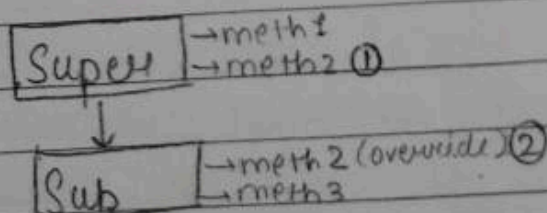 Super →meth1
→meth2 ①
Sub →meth2 (override) ②
→meth3